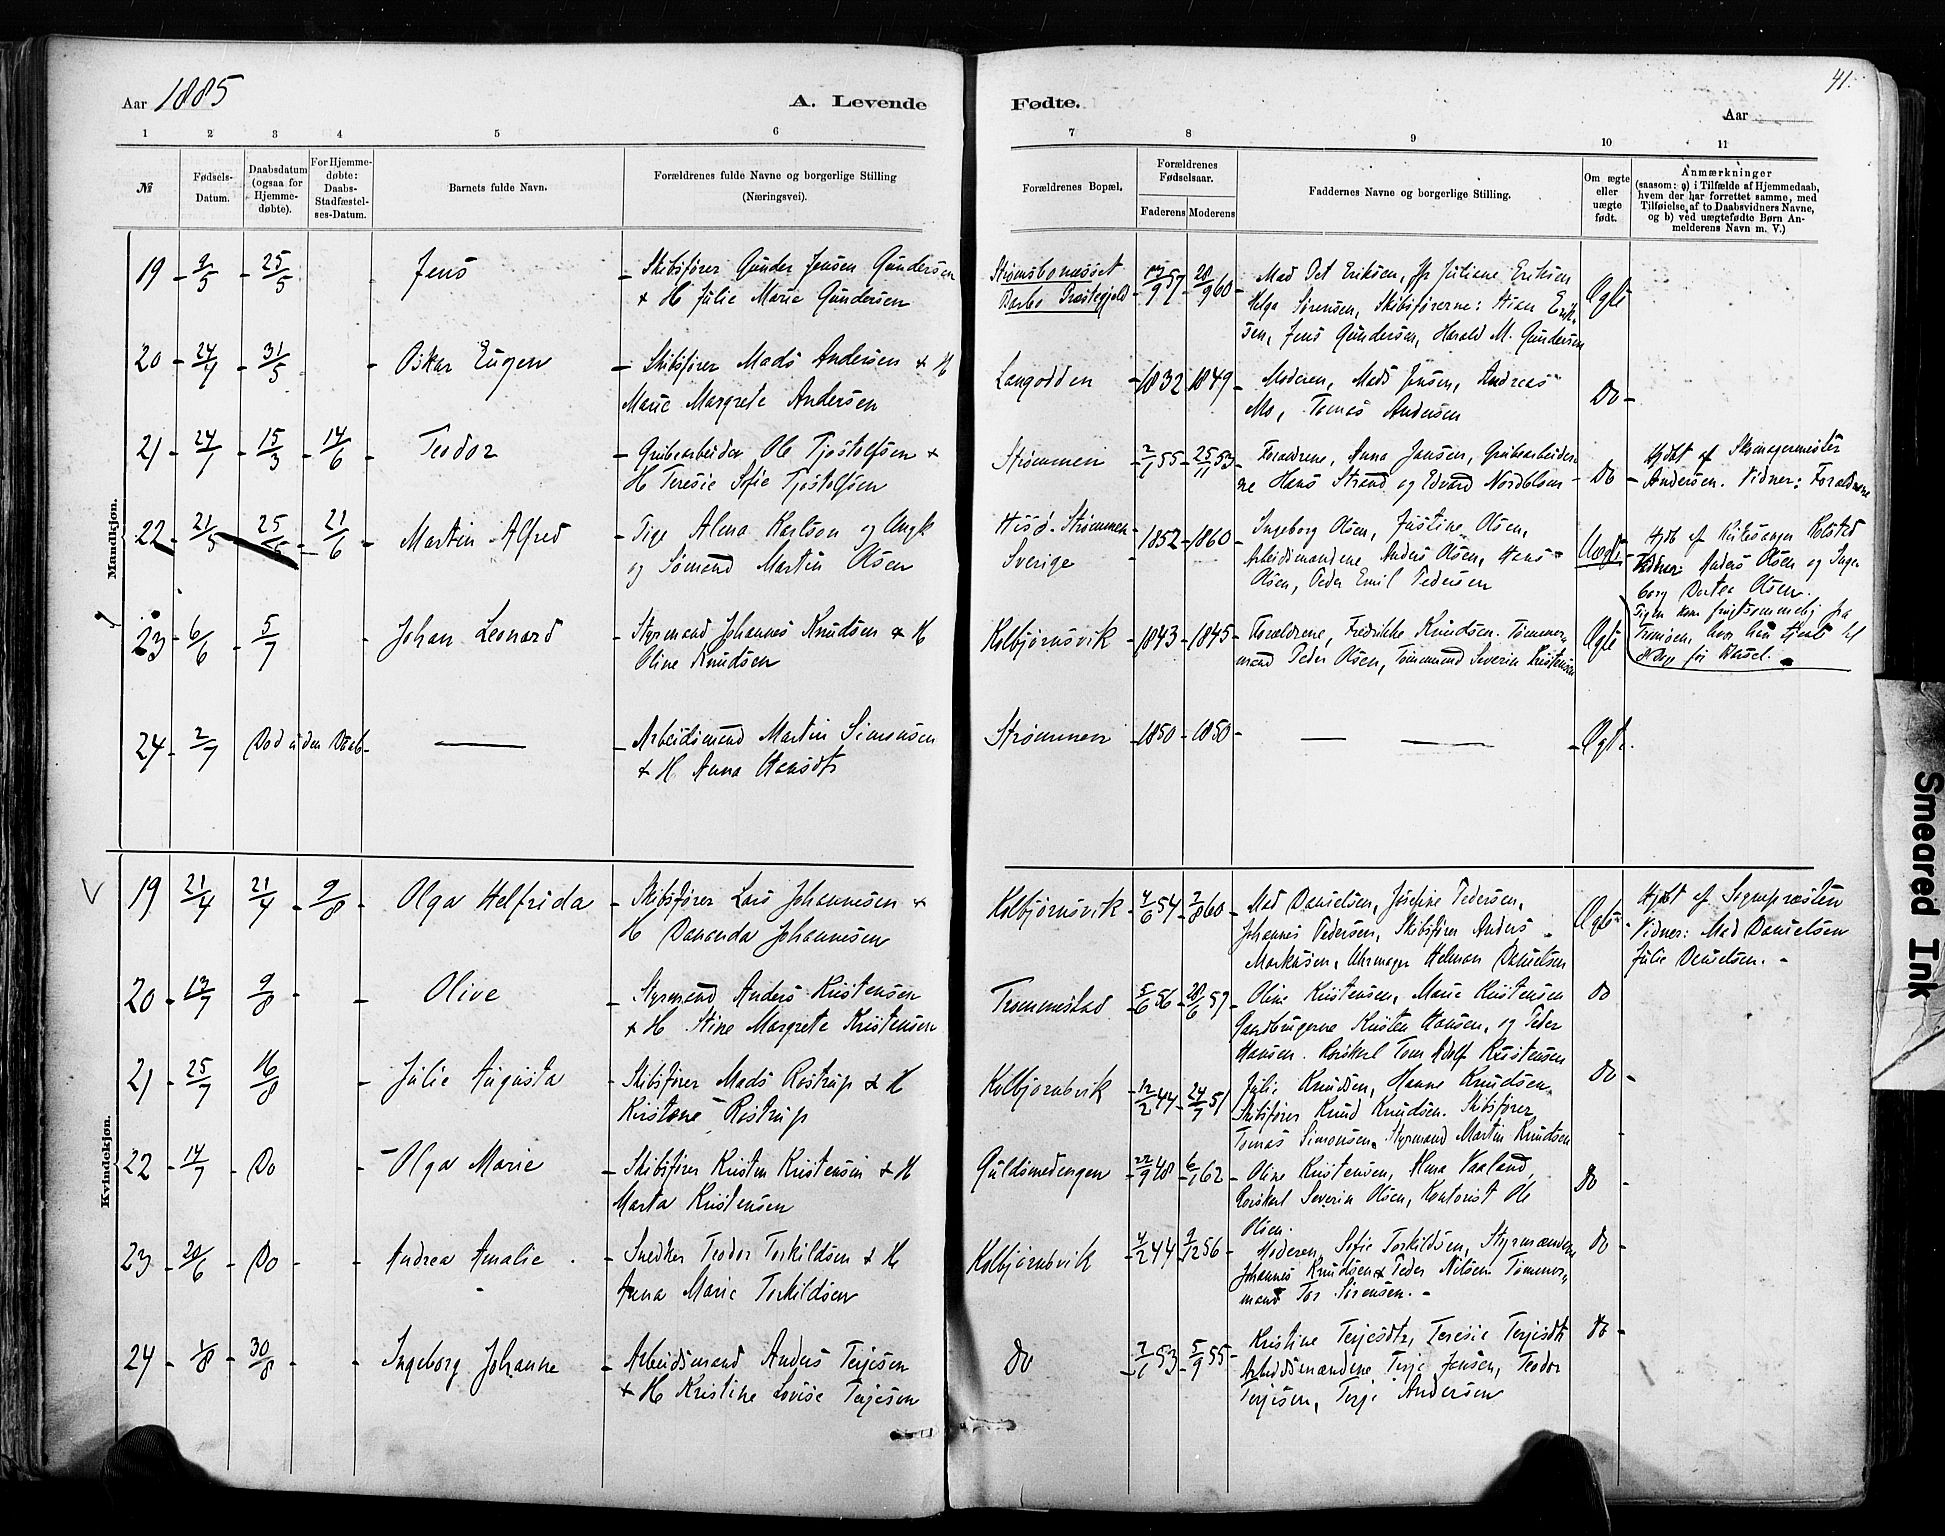 Aar 1885
A. Levende
1 2 3 4 5 6
№
Fødsels-
Datum.
Daabsdatum
(ogsaa for
Hjemme-
døbte).
For Hjemme-
døbte:
Daabs-
Stadfæstel-
ses-Datum.
Barnets fulde Navn.
Forældrenes fulde Navne og borgerlige Stilling
(Næringsvei).
Mandkjøn.
19 - 9/5 - 25/5 - Jens - Skibsfører Gunder Jensen Gundersen
& H Julie Marie Gundersen
20 - 24/4 - 31/5 - Oskar Eugen - Skibsfører Mads Andersen & H
Marie Margrete Andersen
21 - 24/1 - 15/3 - 14/6 - Teodor - Grubearbeider Ole Tjostolfsen &
H Teresie Sofie Tjostolfsen
22 - 21/5 - 21/6 - Martin Alfred - Pige Alena Karlson og Ungk
og Sømand Martin Olsen
23 - 6/6 - 5/7 - Johan Leonard - Styrmand Johannes Knudsen & H
Oline Knudsen
24 - 2/7 Død uden Daab - — - Arbeidsmand Martin Simonsen
& H Anna Hansdtr
Kvindekjøn.
19 21/4 - 21/4 - 9/8 - Olga Helfrida - Skibsfører Lars Johannesen &
H Dananda Johannesen
20 - 13/7 - 9/8 - Olive - Styrmand Anders Kristensen
& H Stine Margrete Kristensen
21 - 25/7 - 16/8 - Julie Augusta - Skibsfører Mads Rostrup & H
Kirstene Rostrup
22 - 14/7 - Do - Olga Marie - Skibsfører Kristen Kristensen & H
Marta Kristensen
23 - 20/6 - Do - Andrea Amalie - Snedker Teodor Torkildsen & H
Anna Marie Torkildsen
24 - 1/8 - 30/8 - Ingeborg Johanne - Arbeidsmand Anders Terjesen
& H Kristine Lovise Terjesen
41.
Fødte.
Aar
7 8 9 10 11
Forældrenes Bopæl.
Forældrenes
Fødselsaar.
Faderens Moderens
Faddernes Navne og borgerlige Stilling.
Om ægte
eller
uægte
født.
Anmærkninger
(saasom: a) i Tilfælde af Hjemmedaab,
hvem der har forrettet samme, med
Tilføielse af to Daabsvidners Navne,
og b) ved uægtefødte Børn An-
melderens Navn m. V.)
Strømsbomssset
Barbo Præstegjeld - /9 57 - 28/9 60 - Mad Pet Eriksen, Jfr Juliene Eriksen
Helga Sørensen, Skibsførerne: Stian Erik-
sen, Jens Gundersen, Harald M. Gundersen
Ægte
Langodden - 1832 - 1849 - Moderen, Mads Jensen, Andreas
Mo, Tomas Andersen
Do -
Strømmen - 2/1 55 - 25/11 53 - Forældrene, Anna Jansen, Grubearbeider-
ne Hans Strand og Edvard Nordblom - Do - Hjdøbt af Skomagermester
Andersen. Vidner: Forældrene
Hisø. Strømmen
Sverige - 1852 - 1860 - Ingeborg Olsen, Justine Olsen,
Arbeidsmandene Anders Olsen, Hans
Olsen, Peder Emil Pedersen
Uægte - Hjdb af Kirkesanger Kolstad
Vidner Anders Olsen og Inge
borg Dortea Olsen.
Pigen kom frugtsommelig fra
Tromøen, hvor hun tjente til
Kolbjørnsvik - 1843 - 1845 - Forældrene, Fredrikke Knudsen. Tømmer-
mand Peder Olsen, Tømmermand Severin Kristensen
Ægte
Strømmen - 1850 - 1850 - — — - Ægte.
Kolbjørnsvik - 4/6 54 - 7/8 60 - Mad Danielsen, Josefine Pedersen,
Johannes Pedersen, Skibsfører Anders
Markusen, Uhrmager Helman Danielsen
Ægte - Hjdøbt af Sognepræsten
Vidner: Mad Danielsen
Julie Danielsen. -
Trommestad - 5/6 56 - 28/6 57 - Oline Kristensen, Marie Kristensen
Gaardbrugerne Kristen Hansen, og Peder
Hansen. Tom Adolf Kristensen
Do
Kolbjørnsvik - 12/2 44 - 24/7 51 - Julie Knudsen, Hanne Knudsen,
Skibsfører Knud Knudsen. Skibsfører
Tomas Simonsen, Styrmand Martin Knudsen
Do -
Guldsmedengen - 22/9 48 - 6/1 62 - Oline Kristensen, Alma Vaaland,
Severin Olsen, Kontorist Ole
Olsen.
Do -
Kolbjørnsvik - 4/2 44 - 9/12 56 - Moderen, Sofie Torkildsen, Styrmændene
Johannes Knudsen & Peder Nilsen. Tømmer-
mand Tor Sørensen. -
Do -
Do - 7/1 53 - 5/9 55 - Kristine Terjesdtr, Teresie Terjesdtr
Arbeidsmændene Terje Jensen, Teodor
Terjesen, Terje Andersen
Do -
Smeared Ink